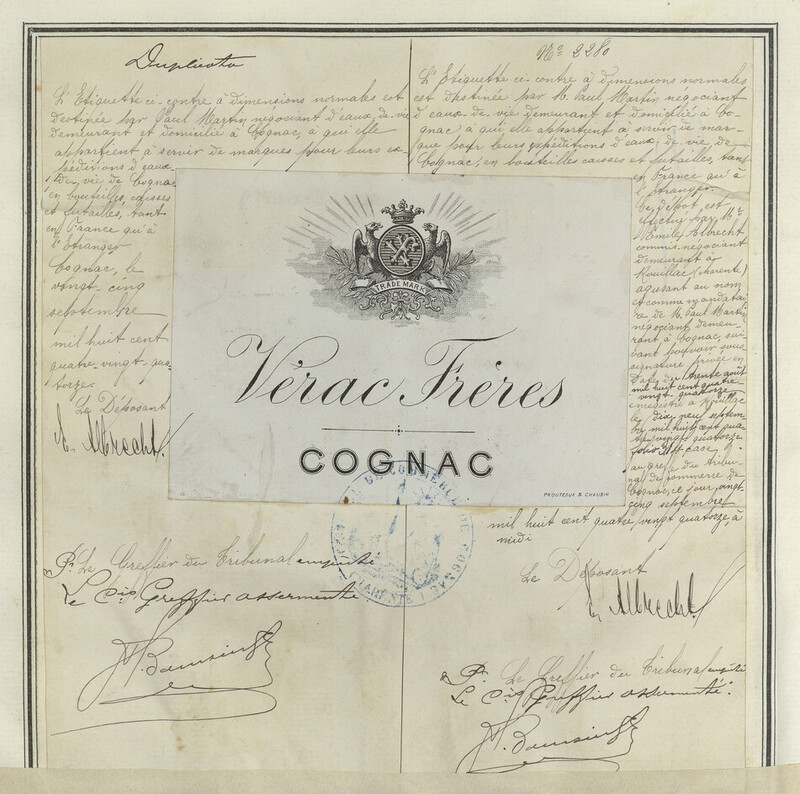 Duplicata
L'Etiquette ci-contre a dimensions normales est
destinée par Paul Martin négociant d'eaux-de-vie
demeurant et domicilié à Cognac, à qui elle
appartient à servir de marques pour leurs ex
péditions d'eaux-
de-vie de Cognac
en bouteilles, caisses
et futailles, tant
en France qu'à
l'étranger
Cognac, le
vingt-cinq
septembre
mil huit cent
quatre-vingt-qua-
torze
Le Déposant
E. Albrecht
Pr. Le Greffier du Tribunal empêché
Le cis Greffier assermenté
No 2280
L'Etiquette ci-contre à dimensions normales
est destinée par M. Paul Martin négociant
d'eaux-de-vie demeurant et domicilié à Co-
gnac à qui elle appartient, à servir de mar-
que pour leurs expéditions d'eaux-de-vie de
Cognac, en bouteilles caisses et futailles, tant
en France qu'à
l'étranger.
Ce dépôt est
effectué par Mr
Emile Albrecht
commis-négociant
demeurant à
Rouillac (Charente)
agissant au nom
et comme mandatai
re de M. Paul Martin
négociant demeu-
rant à Cognac, sui-
vant pouvoir sous-
signature privée en
date du trente août
mil huit cent quatre
vingt-quatorze
enregistré à Rouillac
le dix neuf septem-
bre mil huit cent qua-
tre-vingt quatorze
folio case
au greffe du tribu-
nal de commerce de
Cognac, ce jour vingt-
cinq septembre
mil huit cent quatre vingt quatorze, à
midi
Le Déposant
E. Albrecht
Pr. Le Greffier du Tribunal empêché
Le cis Greffier assermenté
TRADE MARK
Vérac Fréres
COGNAC
PROUTEAUX & CHAUBIN
DE COMMERCE DE COGNAC
CHARENTE